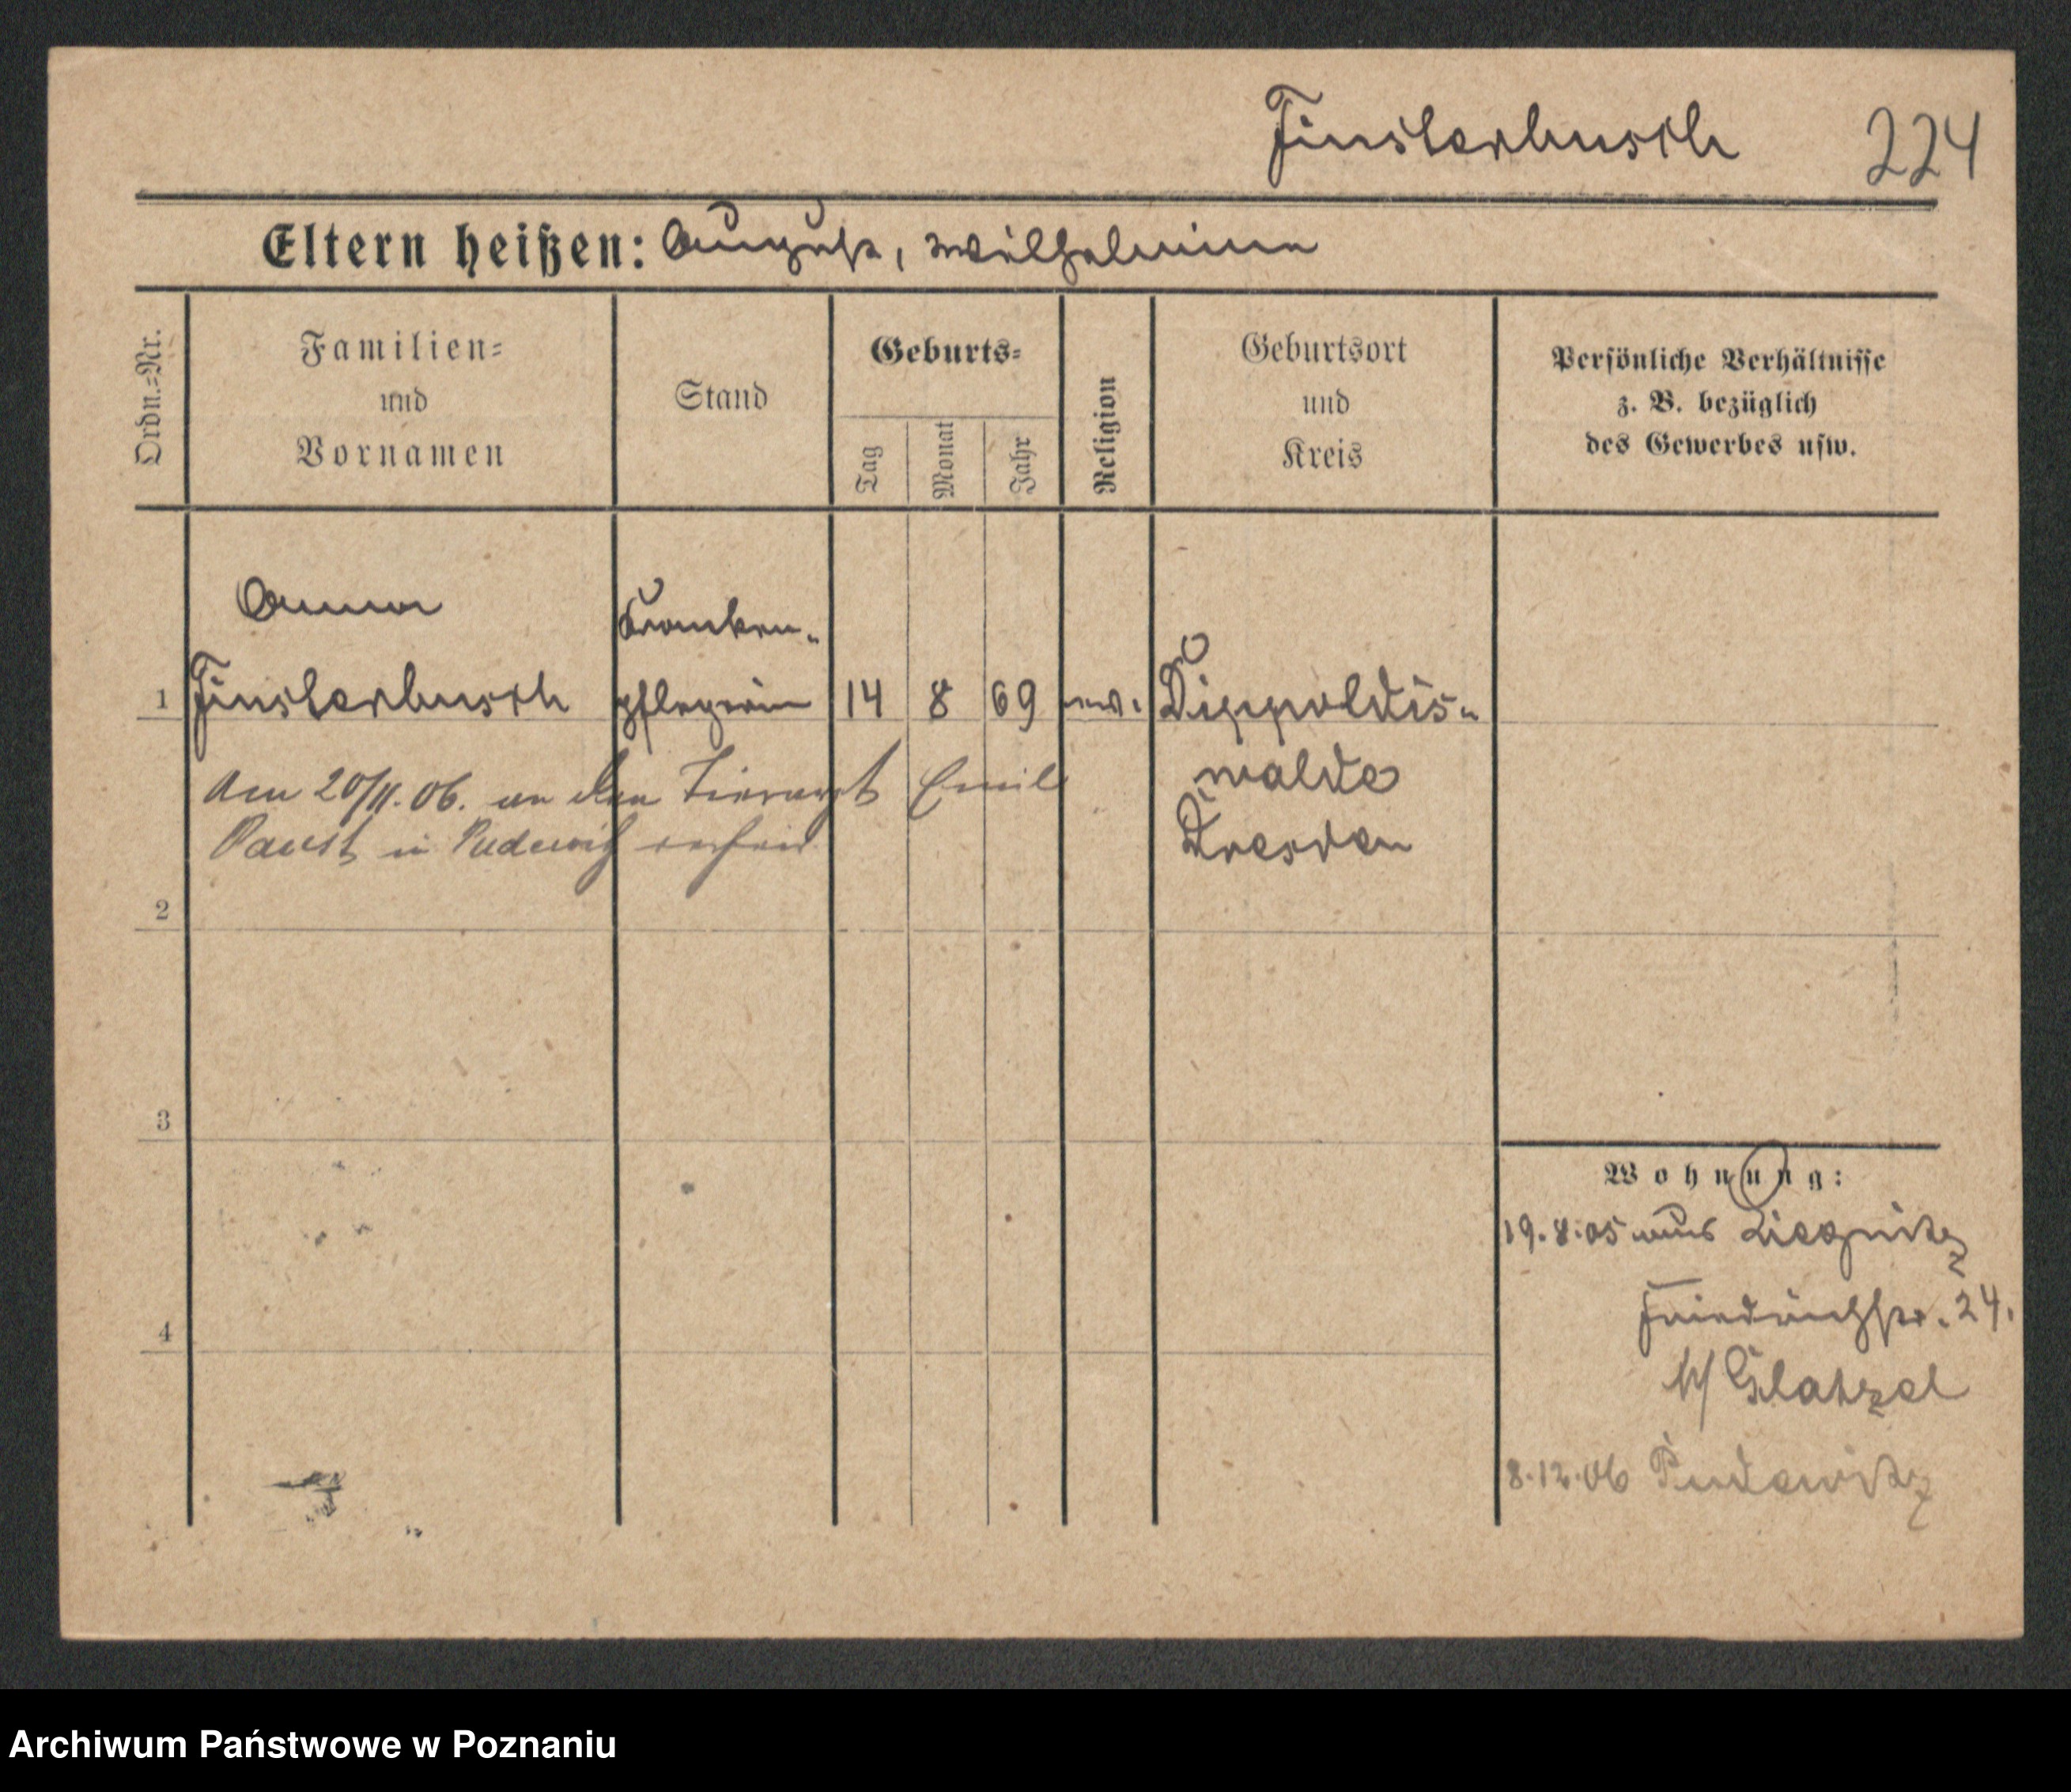 Finsterbusch 224
Eltern heißen: August, Wilhelmine
Ordn.=Nr.
Familien=
und
Vornamen
Stand
Geburts=
Tag
Monat
Jahr
Religion
Geburtsort
und
Kreis
Persönliche Verhältnisse
z. B. bezüglich
des Gewerbes usw.
Anna Kranken-
1 Finsterbusch pflegerin 14 8 69 ev. Dippoldis-
walde
Dresden
Am 20/11.06. an den Tierarzt Emil
Paust in Pudewitz verheir
2
3
4
Wohnung:
19.8.05 aus Liegnitz
Friedrichstr. 24.
b/ Glatzel
8.12.06 Pudewitz
Archiwum Państwowe w Poznaniu